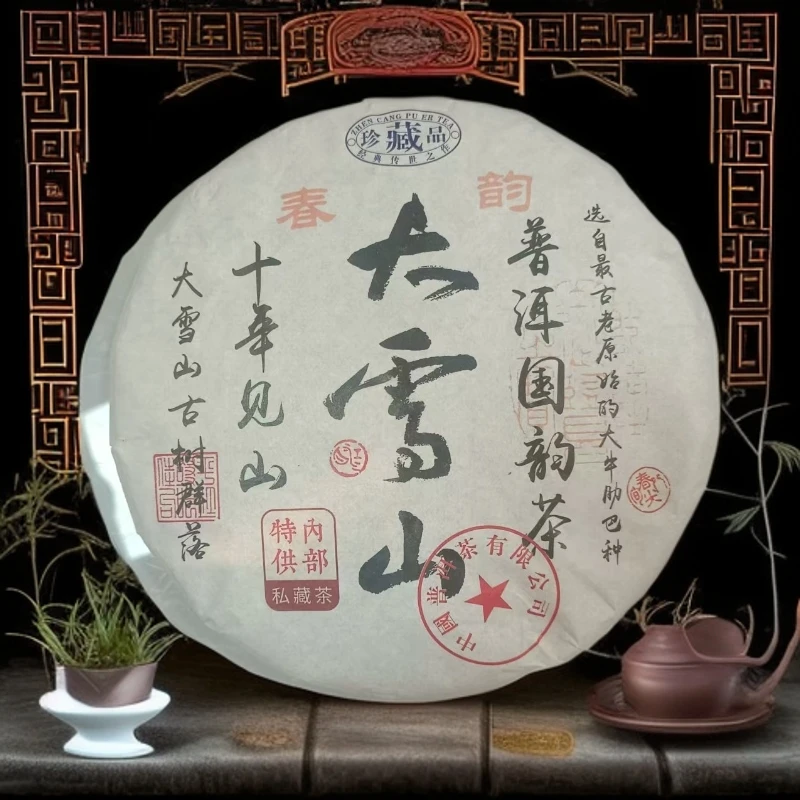 ZHEN CANG PU ER TEA
珍藏品
经典传世之作
春韵
选自最古老原始的大牛肋巴种
普洱国韵茶
大雪山
十年见山
大雪山古树群落
内部
特供
私藏茶
中國普洱茶有限公司